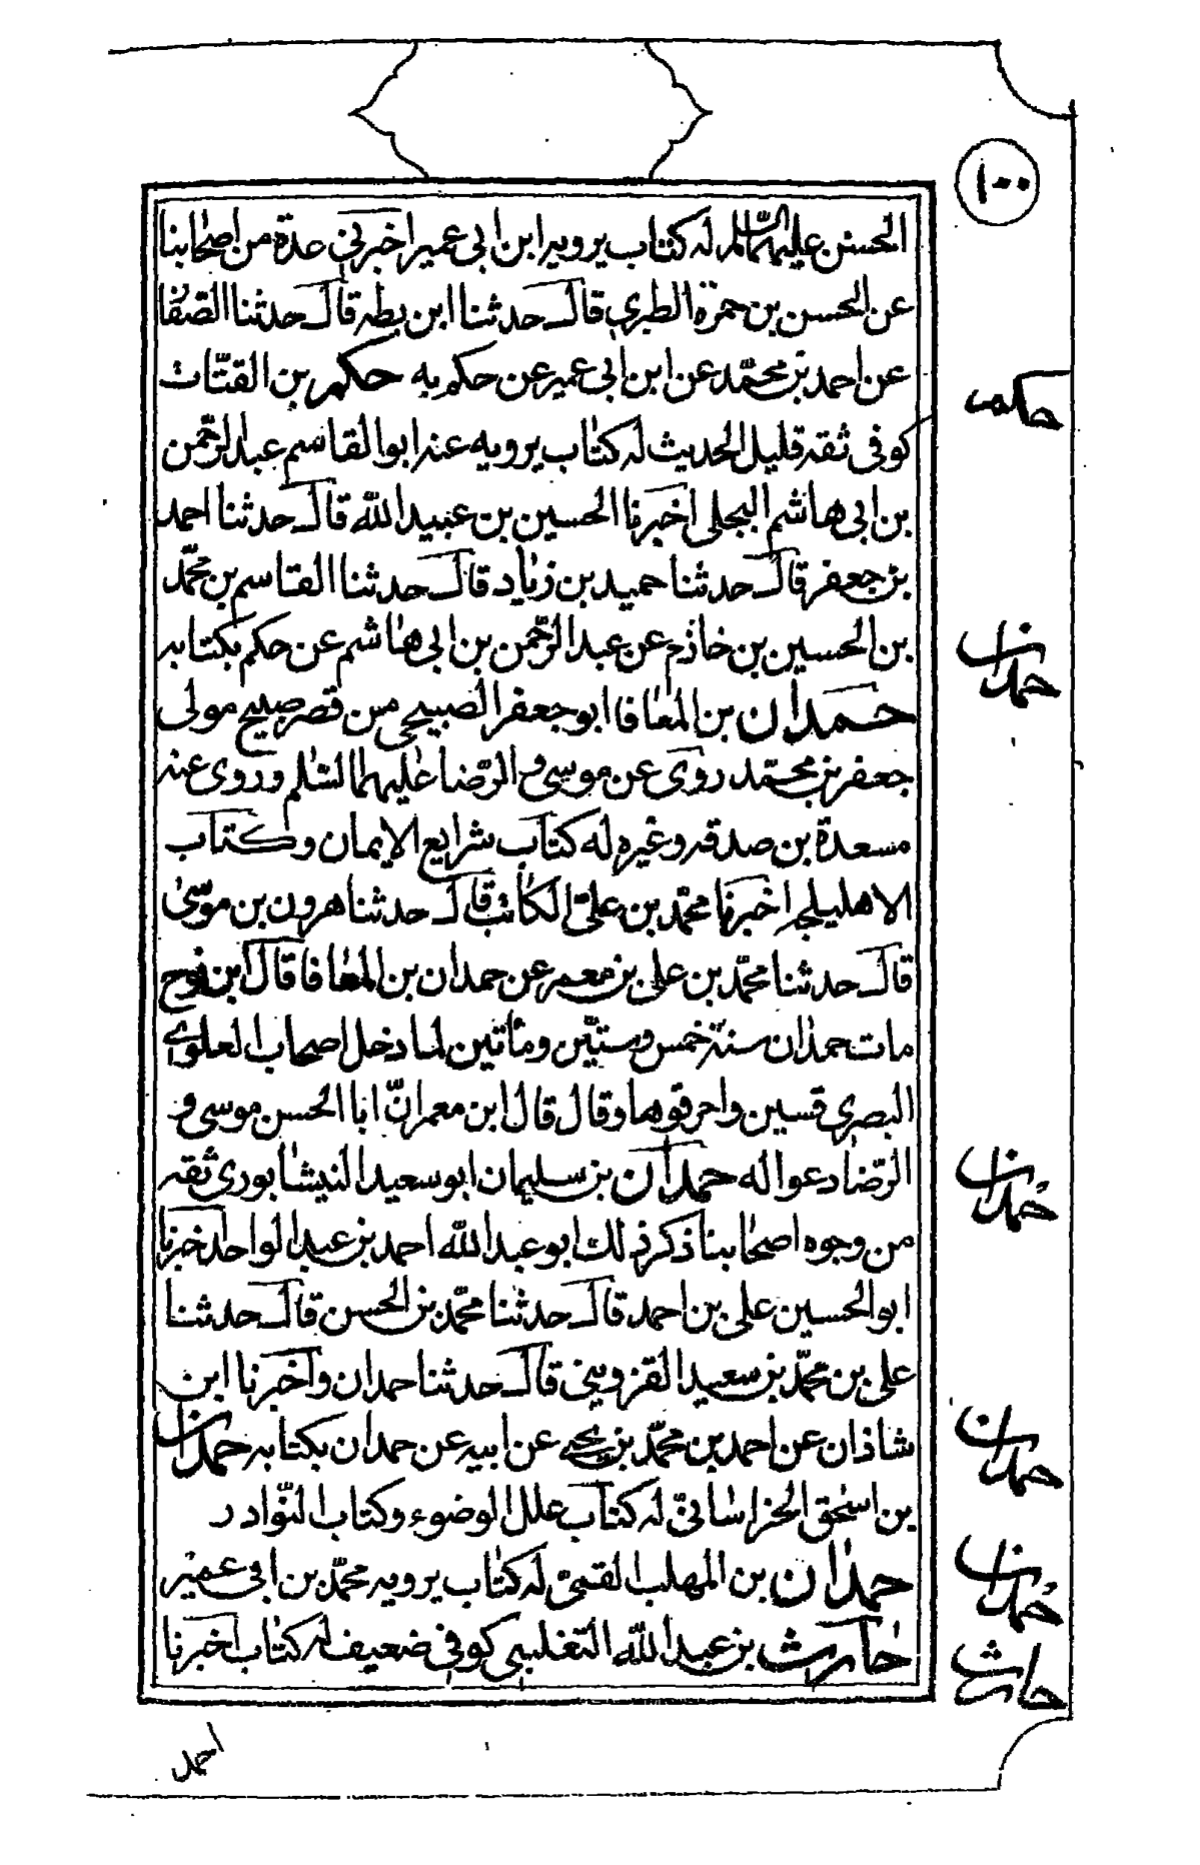 ١٠٠
الحسن عليهما السلم له كتاب يرويه ابن ابى عمير اخبرنى عدة من اصحابنا
عن الحسن بن حمزة الطبرى قال حدثنا ابن بطه قال حدثنا الصفا
عن احمد بن محمّد عن ابن ابى عمير عن حكم به حكم بن القتّات
حكم
كوفى ثقه قليل الحديث له كتاب يرويه عنه ابو القاسم عبد الرحّمن
بن ابى هاشم البجلى اخبرنا الحسين بن عبيد الله قال حدثنا احمد
بن جعفر قال حدثنا حميد بن زياد قال حدثنا القاسم بن محمّد
بن الحسين بن خاذم عن عبد الرحّمن بن ابى هاشم عن حكم بكتابه
حمدان
حمدان بن المعافا ابو جعفر الصبيحى من قصر صبيح مولى
جعفر بن محمّد روى عن موسى و الرّضا عليهما السّلم وروى عنه
مسعدة بن صدقه وغيره له كتاب شرايع الايمان وكتاب
الاهليلجه اخبرنا محمّد بن علىّ الكاتب قال حدثنا هرون بن موسى
قال حدثنا محمّد بن على بن معمر عن حمدان بن المعافا قال ابن نوح
مات حمدان سنة خمس وستيّن ومأتين لما دخل اصحاب العلوى
البصرى قسين واحرقوها وقال قال ابن معمر انّ ابا الحسن موسى و
الرّضا دعوا له حمدان بن سليمان ابو سعيد النيشابورى ثقه
حمدان
من وجوه اصحابنا ذكر ذلك ابو عبد الله احمد بن عبد الواحد اخبرنا
ابو الحسين على بن احمد قال حدثنا محمّد بن الحسن قال حدثنا
على بن محمّد بن سعيد القزوينى قال حدثنا حمدان واخبرنا ابن
شاذان عن احمد بن محمّد بن يحيى عن ابيه عن حمدان بكتابه حمدان
حمدان
بن اسحق الخراسانىّ له كتاب علل الوضوء وكتاب النّوادر
حمدان بن المهلب القمىّ له كتاب يرويه محمّد بن ابى عمير
حمدان
حارث بن عبد الله التغلبى كوفى ضعيف له كتاب اخبرنا
حارث
احمد